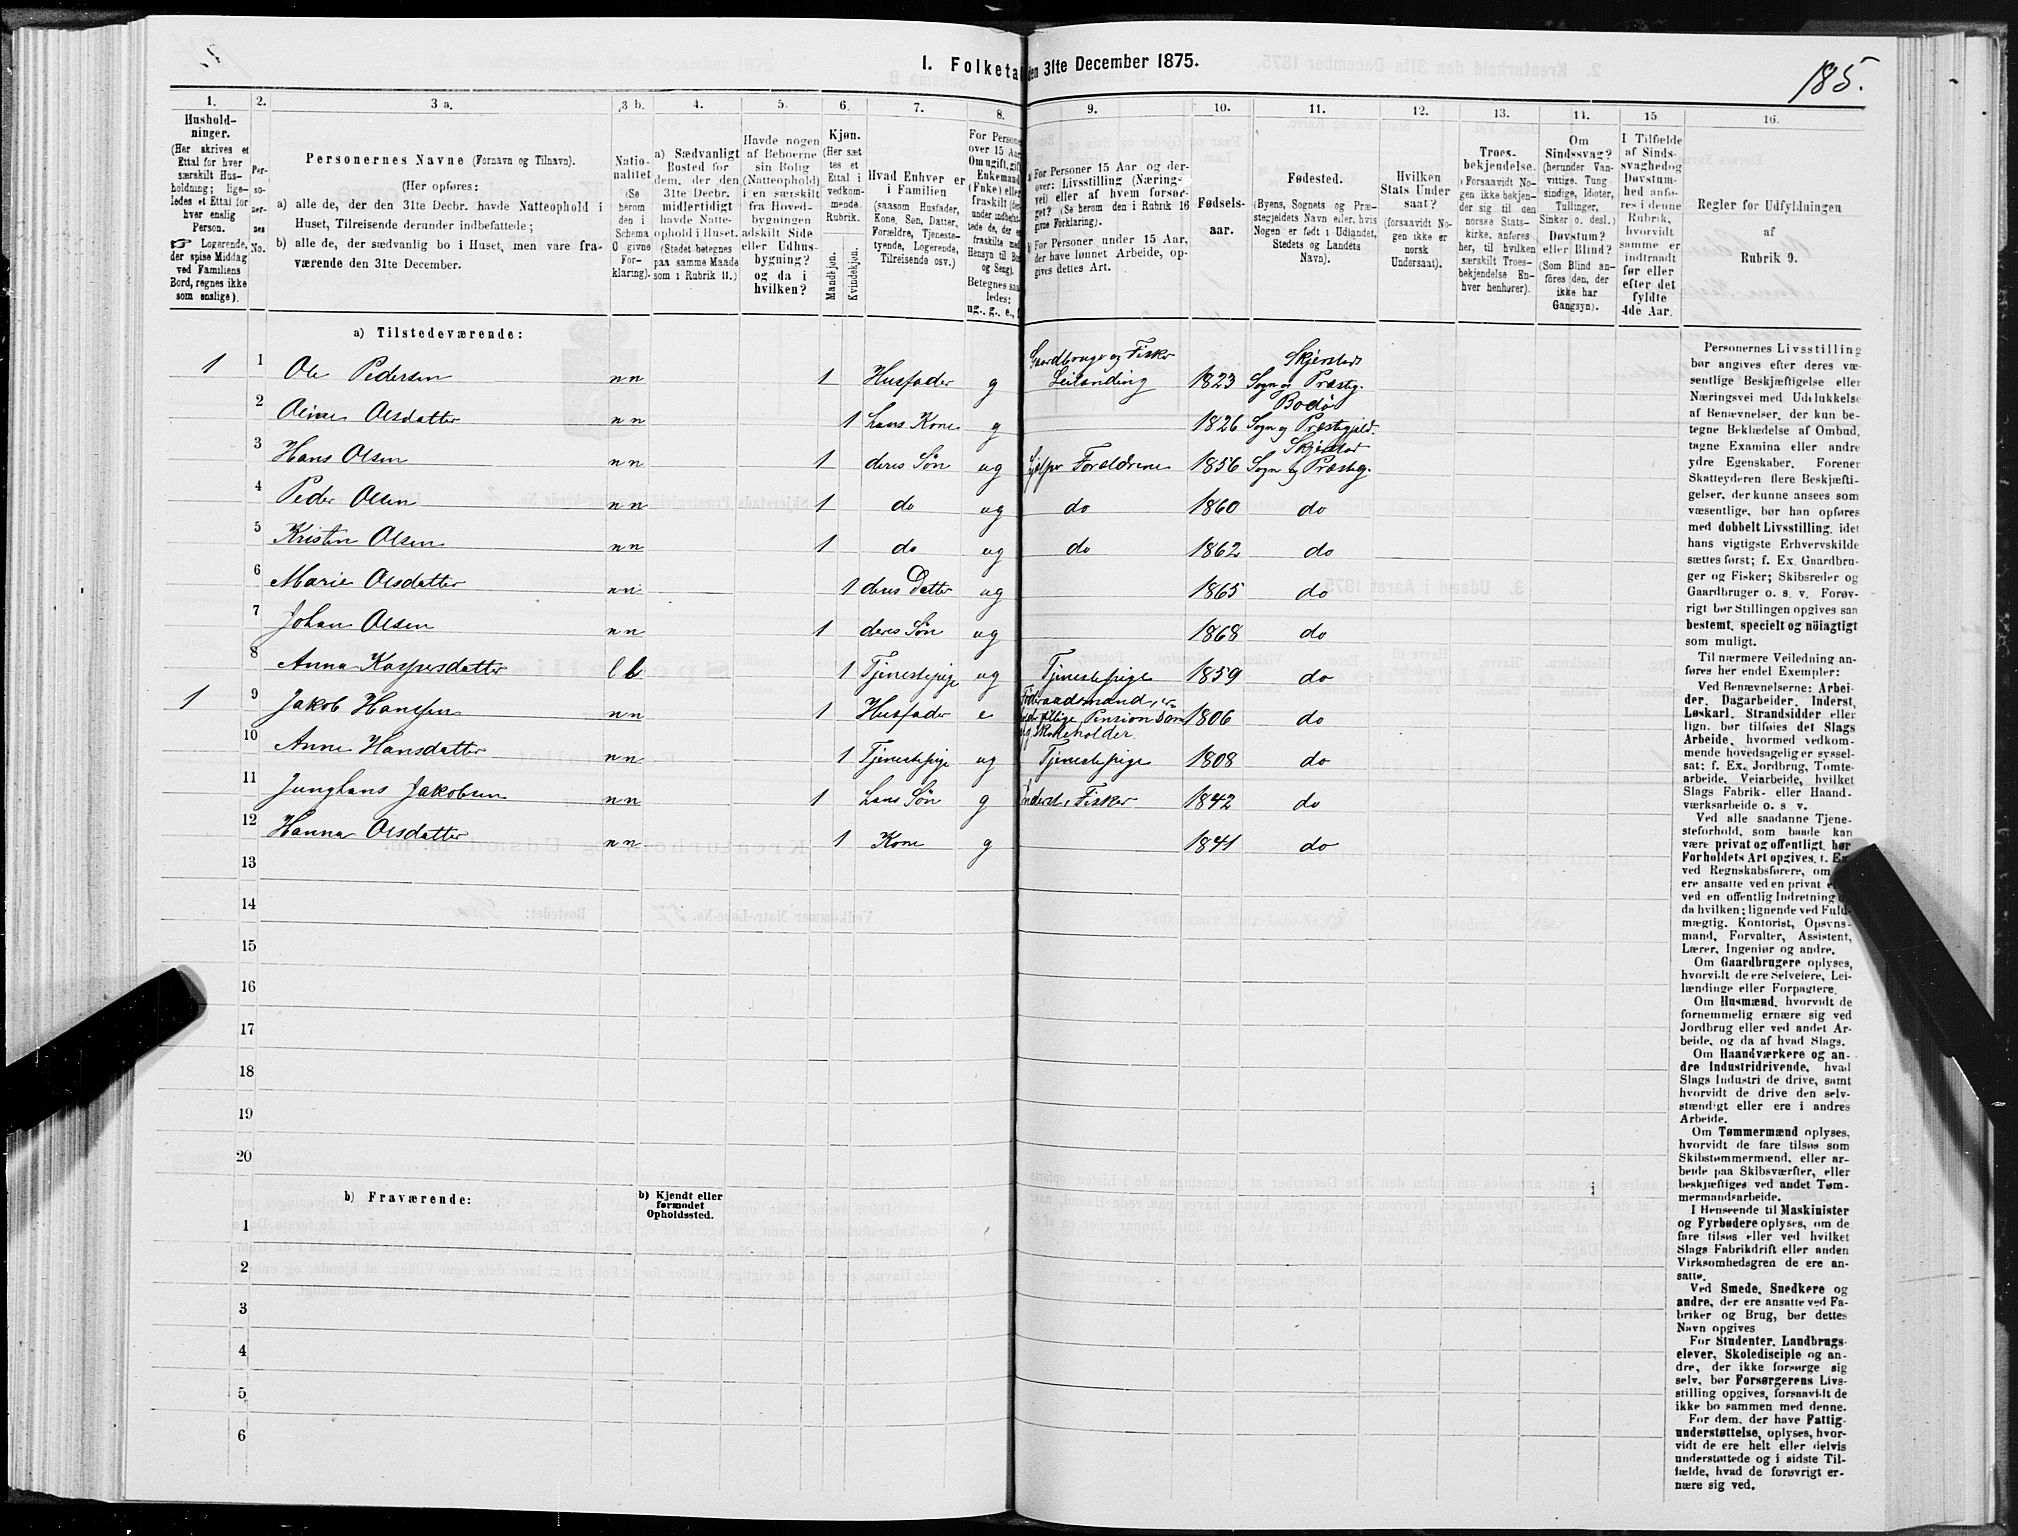 185.
I. Folketal den 31te December 1875.
1.
Husholdninger.
(Her skrives et
Ettal for hver
særskilt Husholdning; ligeledes et Ettal for
hver enslig
Person.
Logerende,
der spise Middag
ved Familiens
Bord, regnes ikke
som enslige).
2.
Personernes
No.
3 a.
Personernes Navne (Fornavn og Tilnavn).
(Her opføres:
a) alle de, der den 31te Decbr. havde Natteophold i
Huset, Tilreisende derunder indbefattede;
b) alle de, der sædvanlig bo i Huset, men vare fraværende den 31te December.
3 b.
Nationalitet
(Se
herom
den i
Schema
O givne
Forklaring).
4.
a) Sædvanligt
Bosted for
dem, der den
31te Decbr.
midlertidigt
havde Natteophold i Huset.
(Stedet betegnes
paa samme Maade
som i Rubrik 11.)
5.
Havde nogen
af Beboerne
sin Bolig
(Natteophold)
i en særskilt
fra Hovedbygningen
adskilt Side
eller Udhusbygning?
og da i
hvilken?
6.
Kjøn.
(Her sættes et
Ettal i
vedkommende
Rubrik.
Mandkjøn.
Kvindekjøn.
7.
Hvad Enhver er
i Familien
(saasom Husfader,
Kone, Søn, Datter,
Forældre, Tjenestetyende, Logerende,
Tilreisende osv.)
8.
For Personer
over 15 Aar
Om ugift, gift
Enkemand
(Fnke) eller
fraskilt
Betegnes saaledes:
ug., g., e.,
9.
a) For Personer 15 Aar og derover: Livsstilling (Næringsvei) eller af hvem forsørget? (Se herom den i Rubrik 16
givne Forklaring).
b) For Personer under 15 Aar,
der have lønnet Arbeide, opgives dettes Art.
10.
Fødselsaar.
11.
Fødested.
(Byens, Sognets og Præstegjeldets Navn eller, hvis
Nogen er født i Udlandet,
Stedets og Landets
Navn).
12.
Hvilken
Stats Undersaat?
(forsaavidt Nogen ikke er
norsk
Undersaat).
13.
Troesbekjendelse.
(Forsaavidt Nogen ikke bekjender sig til den
norske Statskirke, anføres
her, til hvilken
særskilt Troesbekjendelse Enhver henhører).
14.
Om
Sindssvag?
(herunder Vanvittige, Tungsindige, Idioter,
Tullinger,
Sinker o. desl.)
Døvstum?
eller Blind?
(Som Blind anføres den, der
ikke har
Gangsyn).
15
I Tilfælde
af Sindssvaghed og
Døvstumhed anføres i denne
Rubrik,
hvorvidt
samme er
indtraadt
før eller
efter det
fyldte
4de Aar.
16.
Regler for Udfyldningen
af
Rubrik 9.
a) Tilstedeværende:
1 1 Ole Pedersen nn 1 Husfader g Gaardbruger og Fisker Leilænding 1823 Skjerstad Sogn og Præstg.
2 Oline Olsdatter nn 1 hans Kone g 1826 Bodø Sogn og Præstegjeld.
3 Hans Olsen nn 1 deres Søn ug hjelper Forældrene 1856 Skjerstad Sogn og Præsteg.
4 Peder Olsen nn 1 do ug do 1860 do
5 Kristen Olsen nn 1 do ug do 1862 do
6 Marie Olsdatter nn 1 deres Datter ug 1865 do
7 Johan Olsen nn 1 deres Søn ug 1868 do
8 Anna Kaspersdatter lb 1 Tjenestepige ug Tjenestepige 1859 do
1 9 Jakob Hansen nn 1 Husfader e Føderaadsmand, Skoleholder. 1806 do
10 Anne Hansdatter nn 1 Tjenestepige ug Tjenestepige 1808 do
11 Junghans Jakobsen nn 1 hans Søn g Inderst, Fisker 1842 do
12 Hanna Olsdatter nn 1 Kone g 1841 do
13
14
15
16
17
18
19
20
b) Fraværende:
b) Kjendt eller
formodet
Opholdssted.
1
2
3
4
5
6
Personernes Livsstilling
bør angives efter deres væsentlige Beskjæftigelse eller
Næringsvei med Udelukkelse
af Benævnelser, der kun betegne Beklædelse af Ombud,
tagne Examina eller andre
ydre Egenskaber. Forener
Skatteyderen flere Beskjæftigelser, der kunne ansees som
væsentlige, bør han opføres
med dobbelt Livsstilling, idet
hans vigtigste Erhvervskilde
sættes først; f. Ex. Gaardbruger og Fisker; Skibsreder og
Gaardbruger o. s. v. Forøvrigt bør Stillingen opgives saa
bestemt, specielt og nöiagtigt
som muligt.
Til nærmere Veiledning anføres her endel Exempler:
Ved Benævnelserne: Arbeider, Dagarbeider, Inderst,
Løskarl, Strandsidder eller
lign. bør tilføies det Slags
Arbeide, hvormed vedkommende hovedsagelig er sysselsat; f. Ex. Jordbrug, Tomtearbeide, Veiarbeide, hvilket
Slags Fabrik- eller Haandværksarbeide o. s. v.
Ved alle saadanne Tjenesteforhold, som baade kan
være privat og offentligt, bør
Forholdets Art opgives, f. Ex.
ved Regnskabsførere, om
ere ansatte ved en privat
ved en offentlig Indretning
da hvilken; lignende ved Fuldmægtig, Kontorist, Opsynsmand, Forvalter, Assistent,
Lærer, Ingeniør og andre.
Om Gaardbrugere oplyses,
hvorvidt de ere Selveiere, Leilændinge eller Forpagtere.
Om Husmænd, hvorvidt de
fornemmelig ernære sig ved
Jordbrug eller ved andet Arbeide, og da af hvad Slags.
Om Haandværkere og andre Industridrivende, hvad
Slags Industri de drive, samt
hvorvidt de drive den selvstændigt eller ere i andres
Arbeide.
Om Tømmermænd oplyses,
hvorvidt de fare tilsøs som
Skibstømmermænd, eller arbeide paa Skibsværfter, eller
beskjæftiges ved andet Tømmermandsarbeide.
I Henseende til Maskinister
og Fyrbødere oplyses, om de
fare tilsøs eller ved hvilket
Slags Fabrikdrift eller anden
Virksomhedsgren de ere ansatte.
Ved Smede, Snedkere og
andre, der ere ansatte ved Fabriker og Brug, bør dettes
Navn opgives
For Studenter, Landbrugselever, Skoledisciple og andre, der ikke forsørge sig
selv, bør Forsørgerens Livsstilling opgives, forsaavidt de
ikke bo sammen med denne.
For dem, der have Fattigunderstøttelse, oplyses, hvorvidt de ere helt eller delvis
understøttede og i sidste Tilfælde, hvad de forøvrigt ernære sig ved.